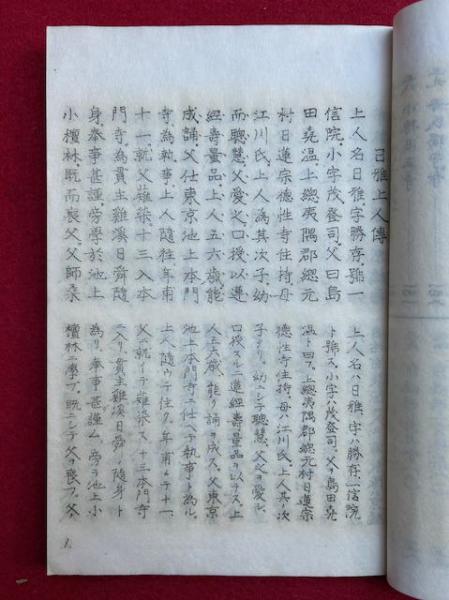 日雅上人傳
上人名日雅字勝存、號一
信院、小字茂登司、父曰島
田堯温上總夷隅郡總元
村日蓮宗德性寺住持母
江川氏、上人為其次子、幼
而聰慧、父愛之、口授以蓮
經壽量品、上人五六歳、能
成誦、父仕東京池上本門
寺、為執事、上人隨往、年甫
十一就父薙染十三入本
門寺為貫主雞溪日舜隨
身、奉事甚謹、旁學於池上
小檀林、既而喪父、父師
上人名ハ日雅、字ハ勝存、一信院
ト號ス、小字ハ茂登司、父ヲ島田堯
温ト曰フ、上總夷隅郡總元村日蓮宗
德性寺住持、母ハ江川氏、上人其ノ次
子タリ、幼ニシテ聰慧、父之ヲ愛シ、
口授スルニ蓮經壽量品ヲ以テス、上
人五六歳、能ク誦ヲ成ス、父東京
池上本門寺ニ仕ヘテ執事ト為ル、
上人隨ウテ往ク、年甫メテ十一、
父ニ就イテ薙染ス、十三本門寺
ニ入リ貫主雞溪日舜ノ隨身ト
為リ、奉事甚謹ム、旁ラ池上小
檀林ニ學フ、既ニシテ父ヲ喪フ、父、